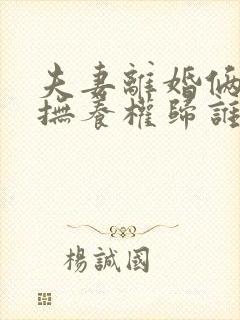 夫妻離婚倆
撫養權歸誰
楊誠國